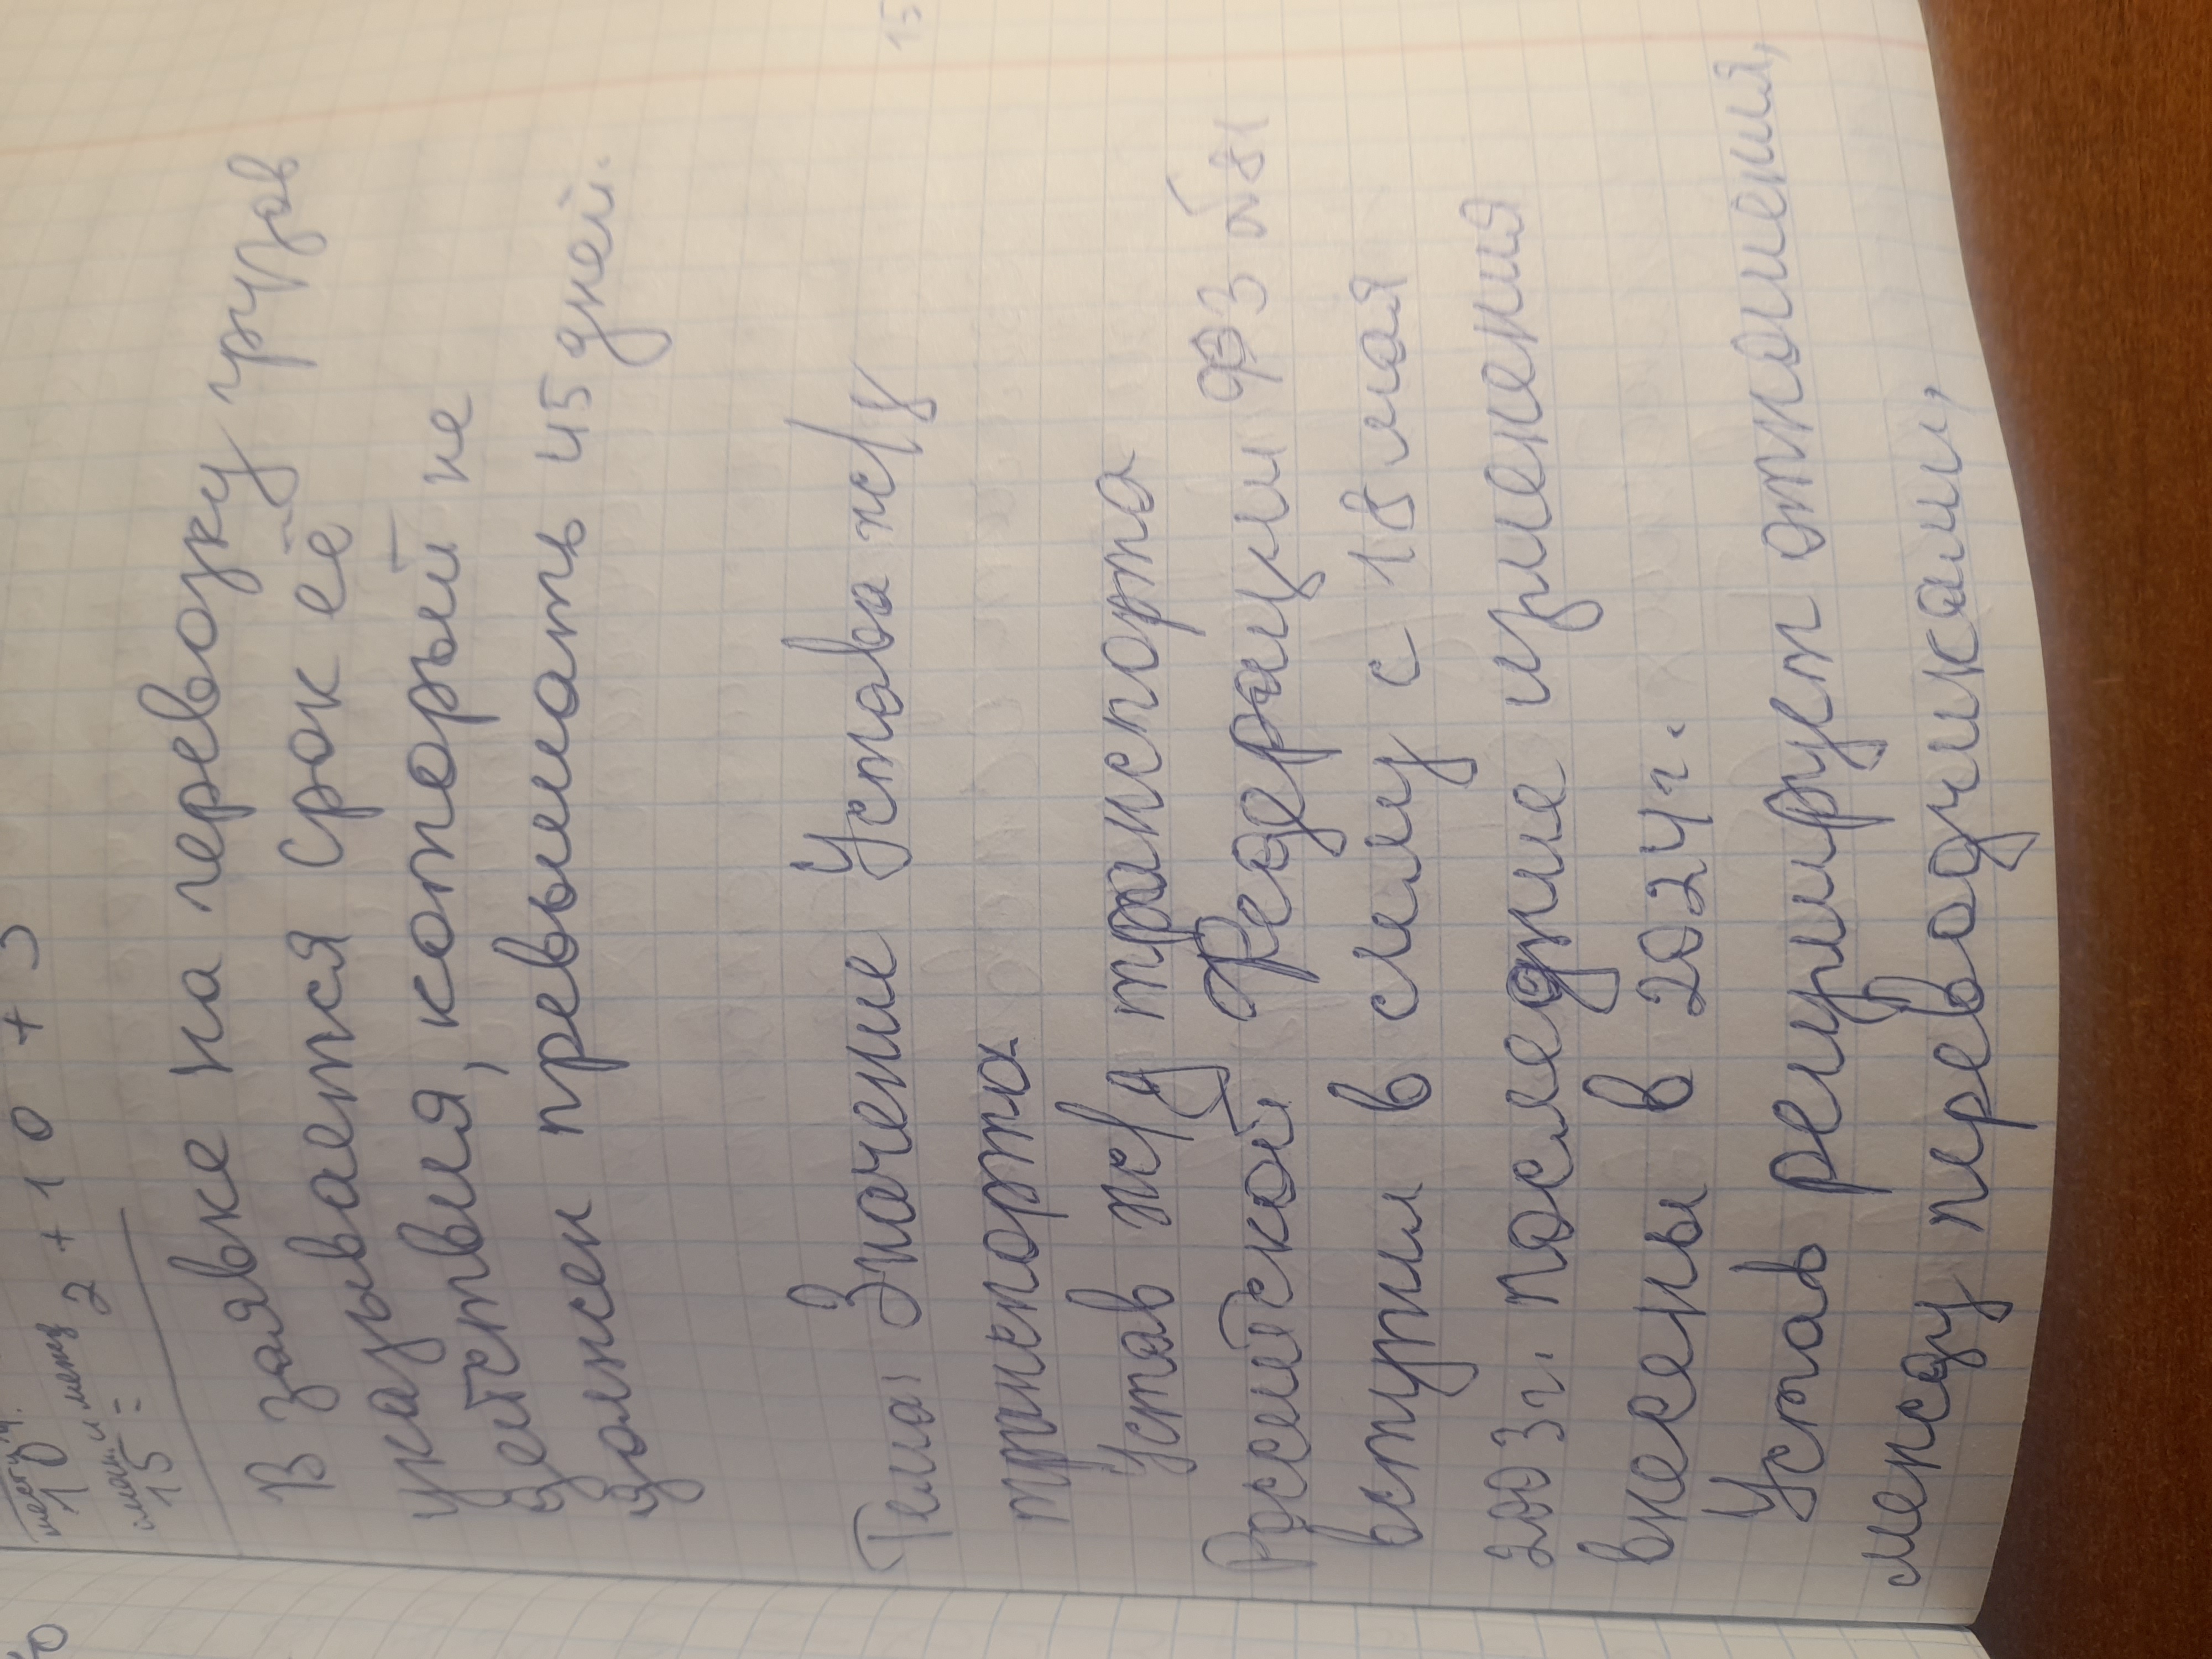 2 + 10 + 3
15 =
В заявке на перевозку грузов
указывается срок её
действия, который не
должен превышать 45 дней.
Тема: Значение Устава ж/д
транспорта
Устав ж/д транспорта
Российской Федерации ФЗ №81
вступил в силу с 18 мая
2003г. последние изменения
внесены в 2024г.
Устав регулирует отношения,
между перевозчиками,